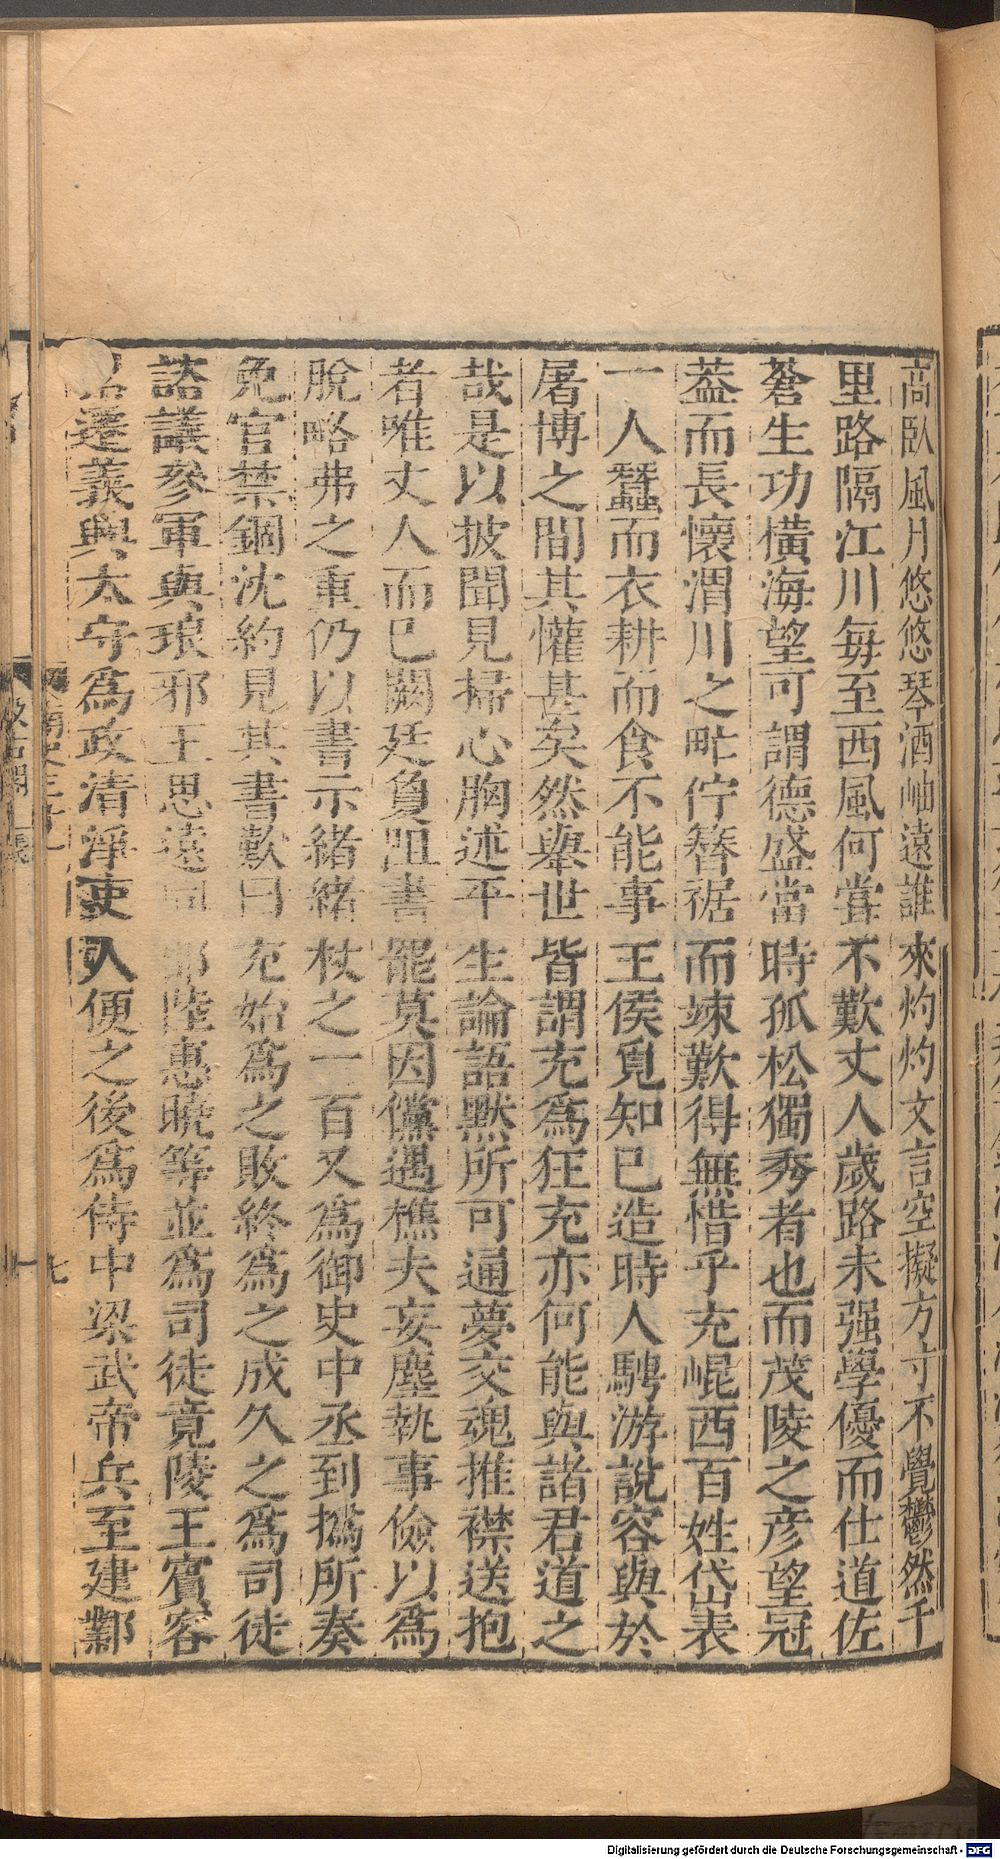 高臥風月悠悠琴酒岫遠誰來灼灼文言空擬方寸不覺鬱然千
里路隔江川每至西風何嘗不歎丈人歲路未强學優而仕道佐
蒼生功橫海望可謂德盛當時孤松獨秀者也而茂陵之彥望冠
葢而長懷渭川之甿佇簪裾而竦歎得無惜乎充崐西百姓岱表
一人蠶而衣耕而食不能事王侯覓知巳造時人騁游說容與於
屠博之間其懽甚矣然舉世皆謂充爲狂充亦何能與諸君道之
哉是以披聞見掃心胸述平生論語默所可通夢交魂推襟送抱
者唯丈人而巳闕廷負阻書罷莫因儻遇樵夫妄塵執事儉以爲
脫略弗之重仍以書示緒緒杖之一百又爲御史中丞到撝所奏
免官禁錮沈約見其書歎曰充始爲之敗終爲之成久之爲司徒
諮議參軍與琅邪王思遠同郡陸惠曉等並爲司徒竟陵王賓客
遷義興太守爲政淸淨吏人便之後爲侍中梁武帝兵至建鄴
南史三十
汲古閣
Digitalisierung gefördert durch die Deutsche Forschungsgemeinschaft - DFG